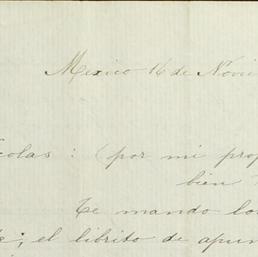 Mexico 16 de Novie
colas : (por mi prop
bien
Te mando lo
; el librito de apun